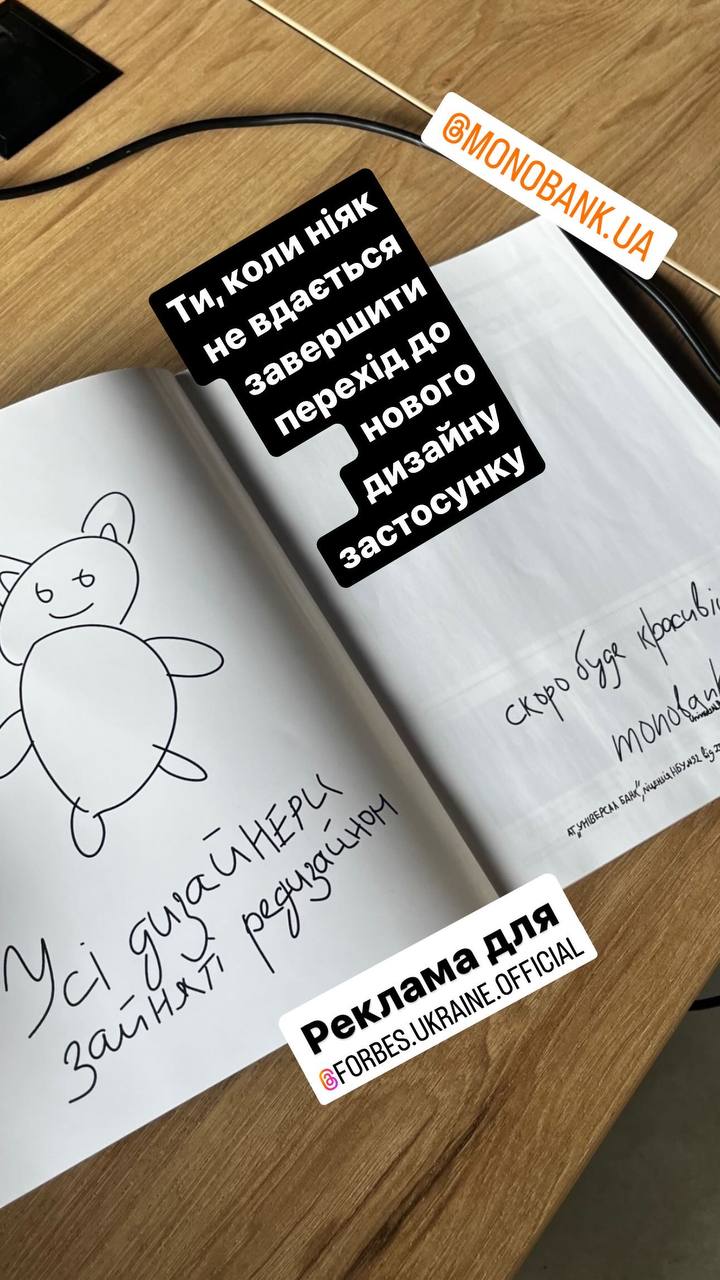 @MONOBANK.UA
Ти, коли ніяк
не вдається
завершити
перехід до
нового
дизайну
застосунку
скоро буде
monobank
АТ „УНІВЕРСАЛ БАНК", ліцензія НБУ №92 від
Усі дизайнери
зайняті редизайном
Реклама для
@FORBES.UKRAINE.OFFICIAL